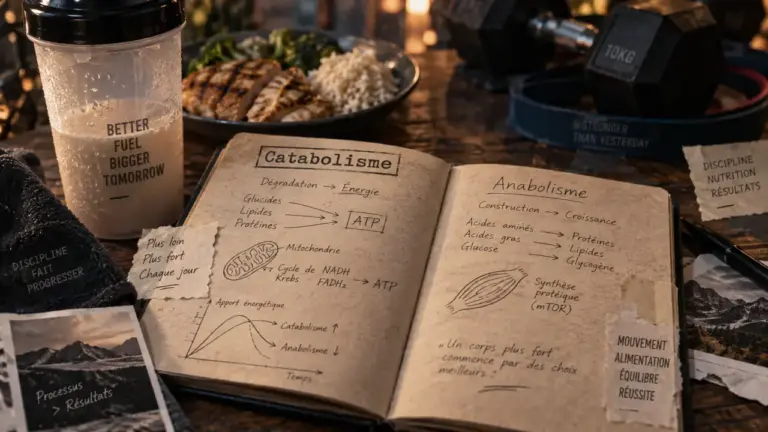 BETTER
FUEL
BIGGER
TOMORROW
10KG
THAN YESTERDAY
DISCIPLINE
NUTRITION
RÉSULTATS
DISCIPLINE
FAIT
PROGRESSER
Plus loin
Plus fort
Chaque jour
Processus
> Résultats
Catabolisme
Dégradation → Énergie
Glucides
Lipides
Protéines
ATP
Mitochondrie
Cycle de
Krebs
NADH
FADH₂
→ ATP
Apport énergétique
Catabolisme ↑
Anabolisme ↓
Temps
Anabolisme
Construction → Croissance
Acides aminés → Protéines
Acides gras → Lipides
Glucose → Glycogène
Synthèse
protéique
(mTOR)
« Un corps plus fort
commence par des choix
meilleurs. »
MOUVEMENT
ALIMENTATION
ÉQUILIBRE
RÉUSSITE